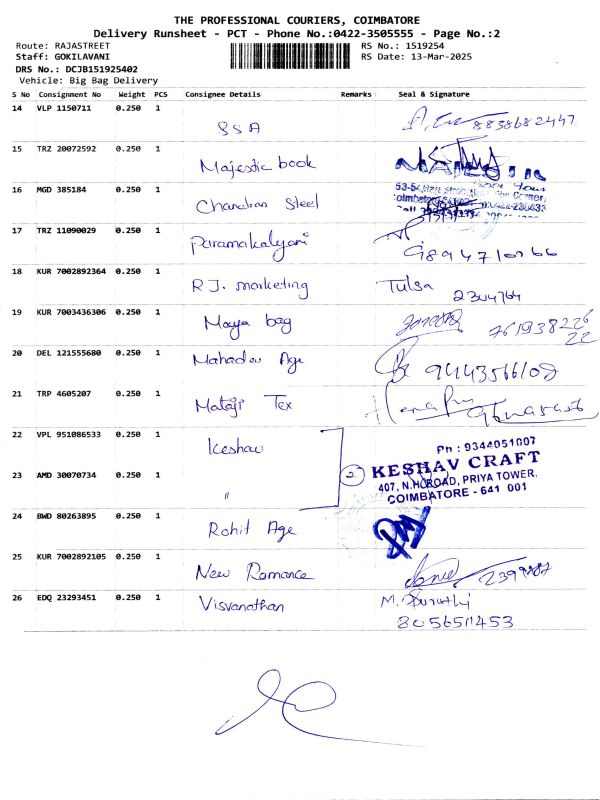 THE PROFESSIONAL COURIERS, COIMBATORE
Delivery Runsheet - PCT - Phone No.:0422-3505555 - Page No.:2
Route: RAJASTREET
RS No.: 1519254
Staff: GOKILAVANI
RS Date: 13-Mar-2025
DRS No.: DCJB151925402
Vehicle: Big Bag Delivery
S No Consignment No Weight PCS Consignee Details Remarks Seal & Signature
14 VLP 1150711 0.250 1 SSA 8838682447
15 TRZ 20072592 0.250 1 Majestic book
16 MGD 385184 0.250 1 Chandran Steel
17 TRZ 11090029 0.250 1 Paramakalyani
18 KUR 7002892364 0.250 1 RJ. marketing Tulsa
19 KUR 7003436306 0.250 1 Maya bag
20 DEL 121555680 0.250 1 Mahadev Age
21 TRP 4605207 0.250 1 Mataji Tex
22 VPL 951086533 0.250 1 Keshav
Ph : 9344051007
23 AMD 30070734 0.250 1 " 2 KESHAV CRAFT
407, N.H.ROAD, PRIYA TOWER,
COIMBATORE - 641 001
24 BWD 80263895 0.250 1 Rohit Age
25 KUR 7002892105 0.250 1 New Romance
26 EDQ 23293451 0.250 1 Visvanathan M. Suruthi
8056511453